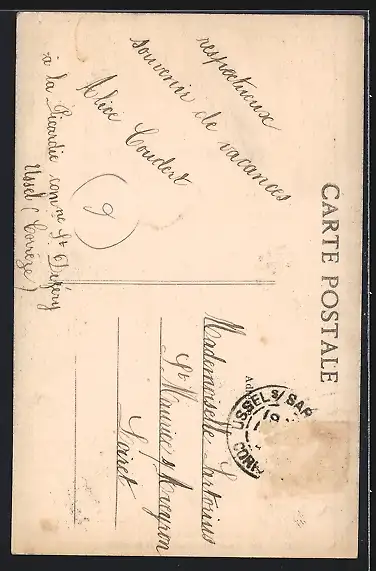 CARTE POSTALE
respectueux
souvenir de vacances
Alice Coudert
(9)
à la Picardie comne St Dezéry
Ussel (Corrèze)
USSEL s/ SAR
CORR
Mademoiselle
St Maurice s/ Aveyron
Loiret